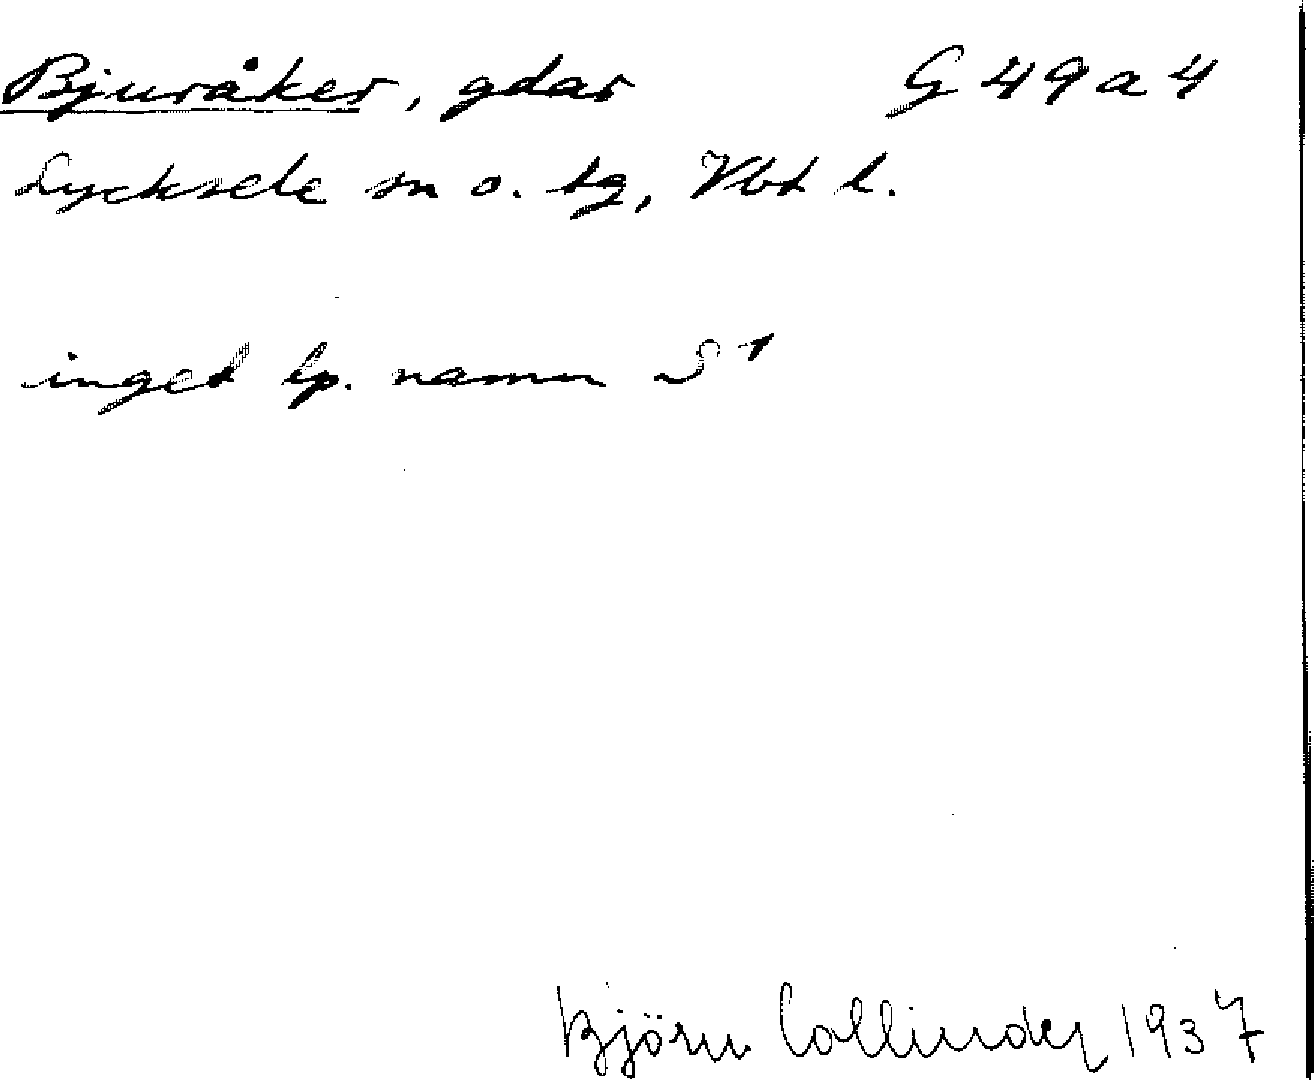 Bjuråker, gdar G 49 a 4
Lycksele sn o. tg, Vbt l.
inget lp. namn S 1
Björn Collinder 1937